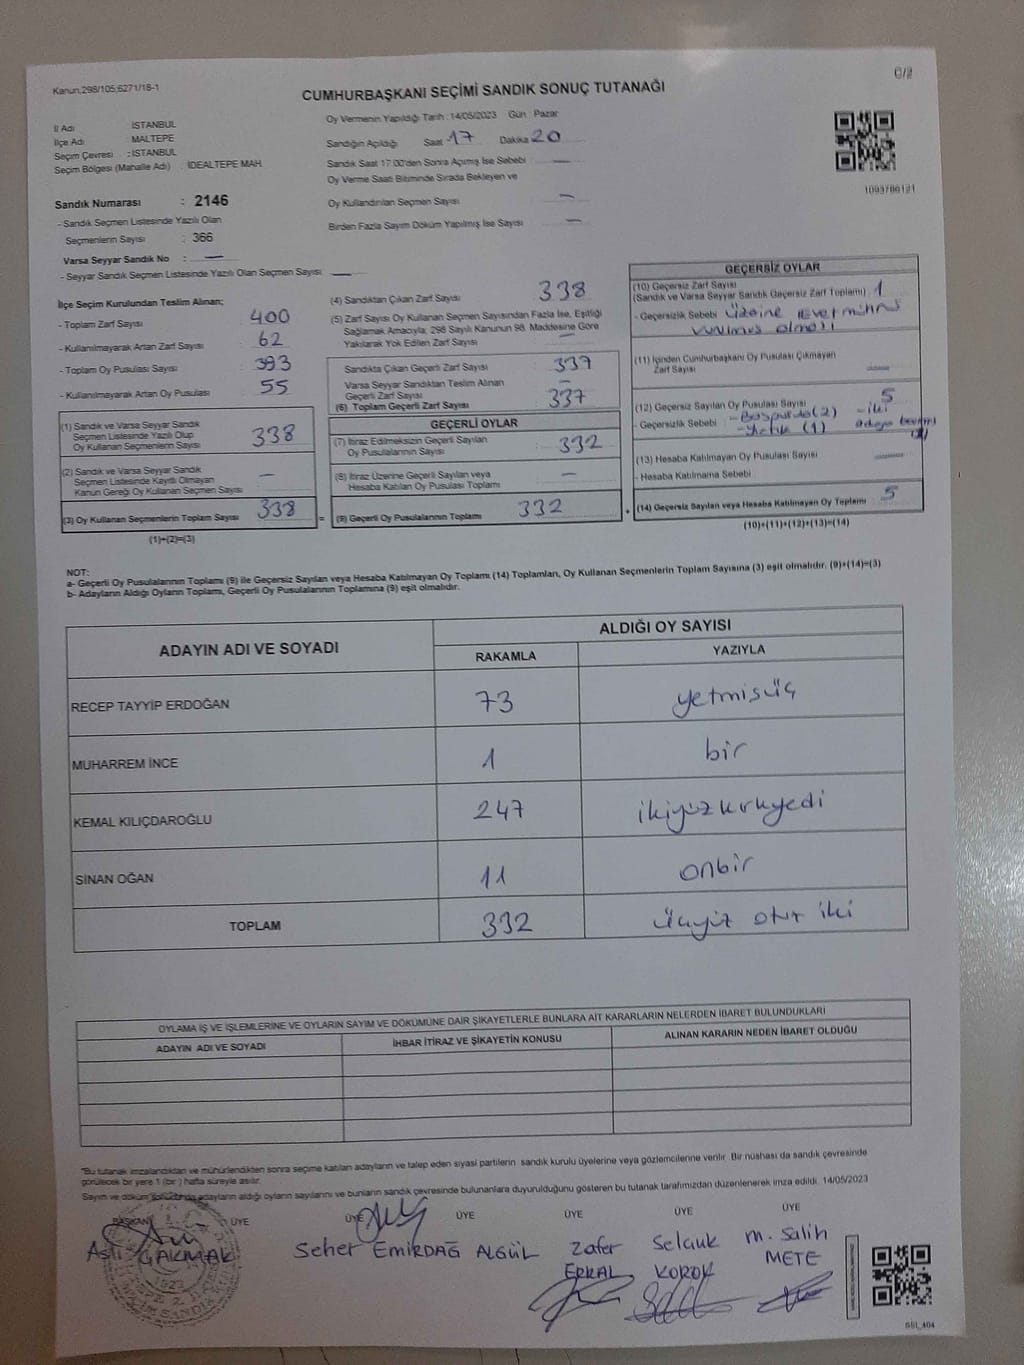 Kanun,298/105,6271/18-1
CUMHURBAŞKANI SEÇİMİ SANDIK SONUÇ TUTANAĞI
İl Adı İSTANBUL
İlçe Adı MALTEPE
Seçim Çevresi : İSTANBUL
Seçim Bölgesi (Mahalle Adı) : İDEALTEPE MAH.
Sandık Numarası : 2146
- Sandık Seçmen Listesinde Yazılı Olan
Seçmenlerin Sayısı : 366
Varsa Seyyar Sandık No : —
- Seyyar Sandık Seçmen Listesinde Yazılı Olan Seçmen Sayısı : —
Oy Vermenin Yapıldığı Tarih : 14/05/2023 Gün Pazar
Sandığın Açıldığı Saat 17 Dakika 20
Sandık Saat 17:00'den Sonra Açımış İse Sebebi —
Oy Verme Saati Bitiminde Sırada Bekleyen ve
Oy Kullandırılan Seçmen Sayısı —
Birden Fazla Sayım Döküm Yapılmış İse Sayısı —
1093786121
İlçe Seçim Kurulundan Teslim Alınan;
- Toplam Zarf Sayısı 400
- Kullanılmayarak Artan Zarf Sayısı 62
- Toplam Oy Pusulası Sayısı 393
- Kullanılmayarak Artan Oy Pusulası 55
(1) Sandık ve Varsa Seyyar Sandık
Seçmen Listesinde Yazılı Olup
Oy Kullanan Seçmenlerin Sayısı 338
(2) Sandık ve Varsa Seyyar Sandık
Seçmen Listesinde Kayıtlı Olmayan
Kanun Gereği Oy Kullanan Seçmen Sayısı —
(3) Oy Kullanan Seçmenlerin Toplam Sayısı 338
(1)+(2)=(3)
(4) Sandıktan Çıkan Zarf Sayısı 338
(5) Zarf Sayısı Oy Kullanan Seçmen Sayısından Fazla İse, Eşitliği
Sağlamak Amacıyla; 298 Sayılı Kanunun 98. Maddesine Göre
Yakılarak Yok Edilen Zarf Sayısı —
Sandıkta Çıkan Geçerli Zarf Sayısı 337
Varsa Seyyar Sandıktan Teslim Alınan
Geçerli Zarf Sayısı —
(6) Toplam Geçerli Zarf Sayısı 337
GEÇERLİ OYLAR
(7) İtiraz Edilmeksizin Geçerli Sayılan
Oy Pusulalarının Sayısı 332
(8) İtiraz Üzerine Geçerli Sayılan veya
Hesaba Katılan Oy Pusulası Toplamı —
= (9) Geçerli Oy Pusulalarının Toplamı 332 +
GEÇERSİZ OYLAR
(10) Geçersiz Zarf Sayısı
(Sandık ve Varsa Seyyar Sandık Geçersiz Zarf Toplamı) 1
- Geçersizlik Sebebi Üzerine Evet mührü
vurulmuş olması
(11) İçinden Cumhurbaşkanı Oy Pusulası Çıkmayan
Zarf Sayısı —
(12) Geçersiz Sayılan Oy Pusulası Sayısı 5
- Geçersizlik Sebebi - Boş pusula (2) - iki
- Yırtık (1) adaya
(13) Hesaba Katılmayan Oy Pusulası Sayısı —
- Hesaba Katılmama Sebebi
(14) Geçersiz Sayılan veya Hesaba Katılmayan Oy Toplamı 5
(10)+(11)+(12)+(13)=(14)
NOT:
a- Geçerli Oy Pusulalarının Toplamı (9) ile Geçersiz Sayılan veya Hesaba Katılmayan Oy Toplamı (14) Toplamları, Oy Kullanan Seçmenlerin Toplam Sayısına (3) eşit olmalıdır. (9)+(14)=(3)
b- Adayların Aldığı Oyların Toplamı, Geçerli Oy Pusulalarının Toplamına (9) eşit olmalıdır.
ADAYIN ADI VE SOYADI ALDIĞI OY SAYISI
RAKAMLA YAZIYLA
RECEP TAYYİP ERDOĞAN 73 yetmişüç
MUHARREM İNCE 1 bir
KEMAL KILIÇDAROĞLU 247 ikiyüzkırkyedi
SİNAN OĞAN 11 onbir
TOPLAM 332 üçyüz otuz iki
OYLAMA İŞ VE İŞLEMLERİNE VE OYLARIN SAYIM VE DÖKÜMÜNE DAİR ŞİKAYETLERLE BUNLARA AİT KARARLARIN NELERDEN İBARET BULUNDUKLARI
ADAYIN ADI VE SOYADI İHBAR İTİRAZ VE ŞİKAYETİN KONUSU ALINAN KARARIN NEDEN İBARET OLDUĞU
"Bu tutanak imzalandıktan ve mühürlendikten sonra seçime katılan adayların ve talep eden siyasi partilerin sandık kurulu üyelerine veya gözlemcilerine verilir. Bir nüshası da sandık çevresinde
görülecek bir yere 1 (bir) hafta süreyle asılır.
Sayım ve döküm sonucunda adayların aldığı oyların sayılarını ve bunların sandık çevresinde bulunanlara duyurulduğunu gösteren bu tutanak tarafımızdan düzenlenerek imza edildi. 14/05/2023
BAŞKAN ÜYE ÜYE ÜYE ÜYE ÜYE ÜYE
Aslı ÇAKMAK Seher EMİRDAĞ ALGÜL Zafer ERKAL Selçuk KOROK M. Salih METE